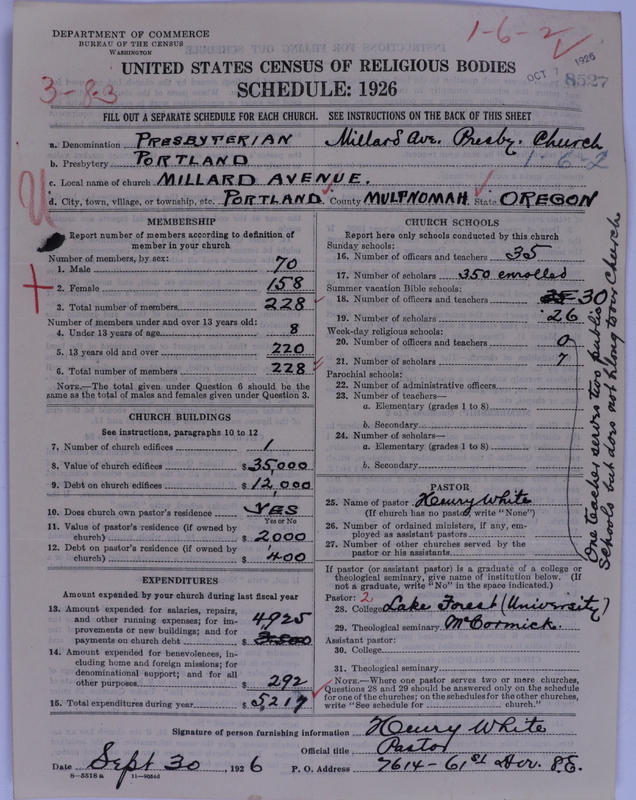 DEPARTMENT OF COMMERCE
BUREAU OF THE CENSUS
WASHINGTON
1-6-2
OCT 7 1926
8527
UNITED STATES CENSUS OF RELIGIOUS BODIES
3-8-3
SCHEDULE: 1926
FILL OUT A SEPARATE SCHEDULE FOR EACH CHURCH. SEE INSTRUCTIONS ON THE BACK OF THIS SHEET
a. Denomination PRESBYTERIAN Millard Ave. Presby. Church
b. Presbytery PORTLAND 1-6-2
c. Local name of church MILLARD AVENUE.
d. City, town, village, or township, etc. PORTLAND. County MULTNOMAH. State OREGON
MEMBERSHIP
Report number of members according to definition of
member in your church
Number of members, by sex:
1. Male 70
2. Female 158
3. Total number of members 228
Number of members under and over 13 years old:
4. Under 13 years of age 8
5. 13 years old and over 220
6. Total number of members 228
NOTE.—The total given under Question 6 should be the
same as the total of males and females given under Question 3.
CHURCH BUILDINGS
See instructions, paragraphs 10 to 12
7. Number of church edifices 1
8. Value of church edifices $35,000
9. Debt on church edifices $12,000
10. Does church own pastor's residence? YES
Yes or No
11. Value of pastor's residence (if owned by
church) $2000
12. Debt on pastor's residence (if owned by
church) $400
EXPENDITURES
Amount expended by your church during last fiscal year
13. Amount expended for salaries, repairs,
and other running expenses; for im-
provements or new buildings; and for
payments on church debt $ 4925
14. Amount expended for benevolences, in-
cluding home and foreign missions; for
denominational support; and for all
other purposes $292
15. Total expenditures during year $5217
CHURCH SCHOOLS
Report here only schools conducted by this church
Sunday schools:
16. Number of officers and teachers 35
17. Number of scholars 350 enrolled
Summer vacation Bible schools:
18. Number of officers and teachers 30
19. Number of scholars 26
Week-day religious schools:
20. Number of officers and teachers 0
21. Number of scholars 7
Parochial schools:
22. Number of administrative officers
23. Number of teachers—
a. Elementary (grades 1 to 8)
b. Secondary
24. Number of scholars—
a. Elementary (grades 1 to 8)
b. Secondary
One teacher serves two public
schools but does not belong to our church
PASTOR
25. Name of pastor Henry White
(If church has no pastor, write "None")
26. Number of ordained ministers, if any, em-
ployed as assistant pastors
27. Number of other churches served by the
pastor or his assistants
If pastor (or assistant pastor) is a graduate of a college or
theological seminary, give name of institution below. (If
not a graduate, write "No" in the space indicated.)
Pastor: 2
28. College Lake Forest (University)
29. Theological seminary McCormick.
Assistant pastor:
30. College
31. Theological seminary
NOTE.—Where one pastor serves two or more churches,
Questions 28 and 29 should be answered only on the schedule
for one of the churches; on the schedules for the other churches,
write "See schedule for church."
Signature of person furnishing information Henry White
Official title Pastor
Date Sept 30, 1926 P. O. Address 7614-61st Ave. S.E.
8—5518a